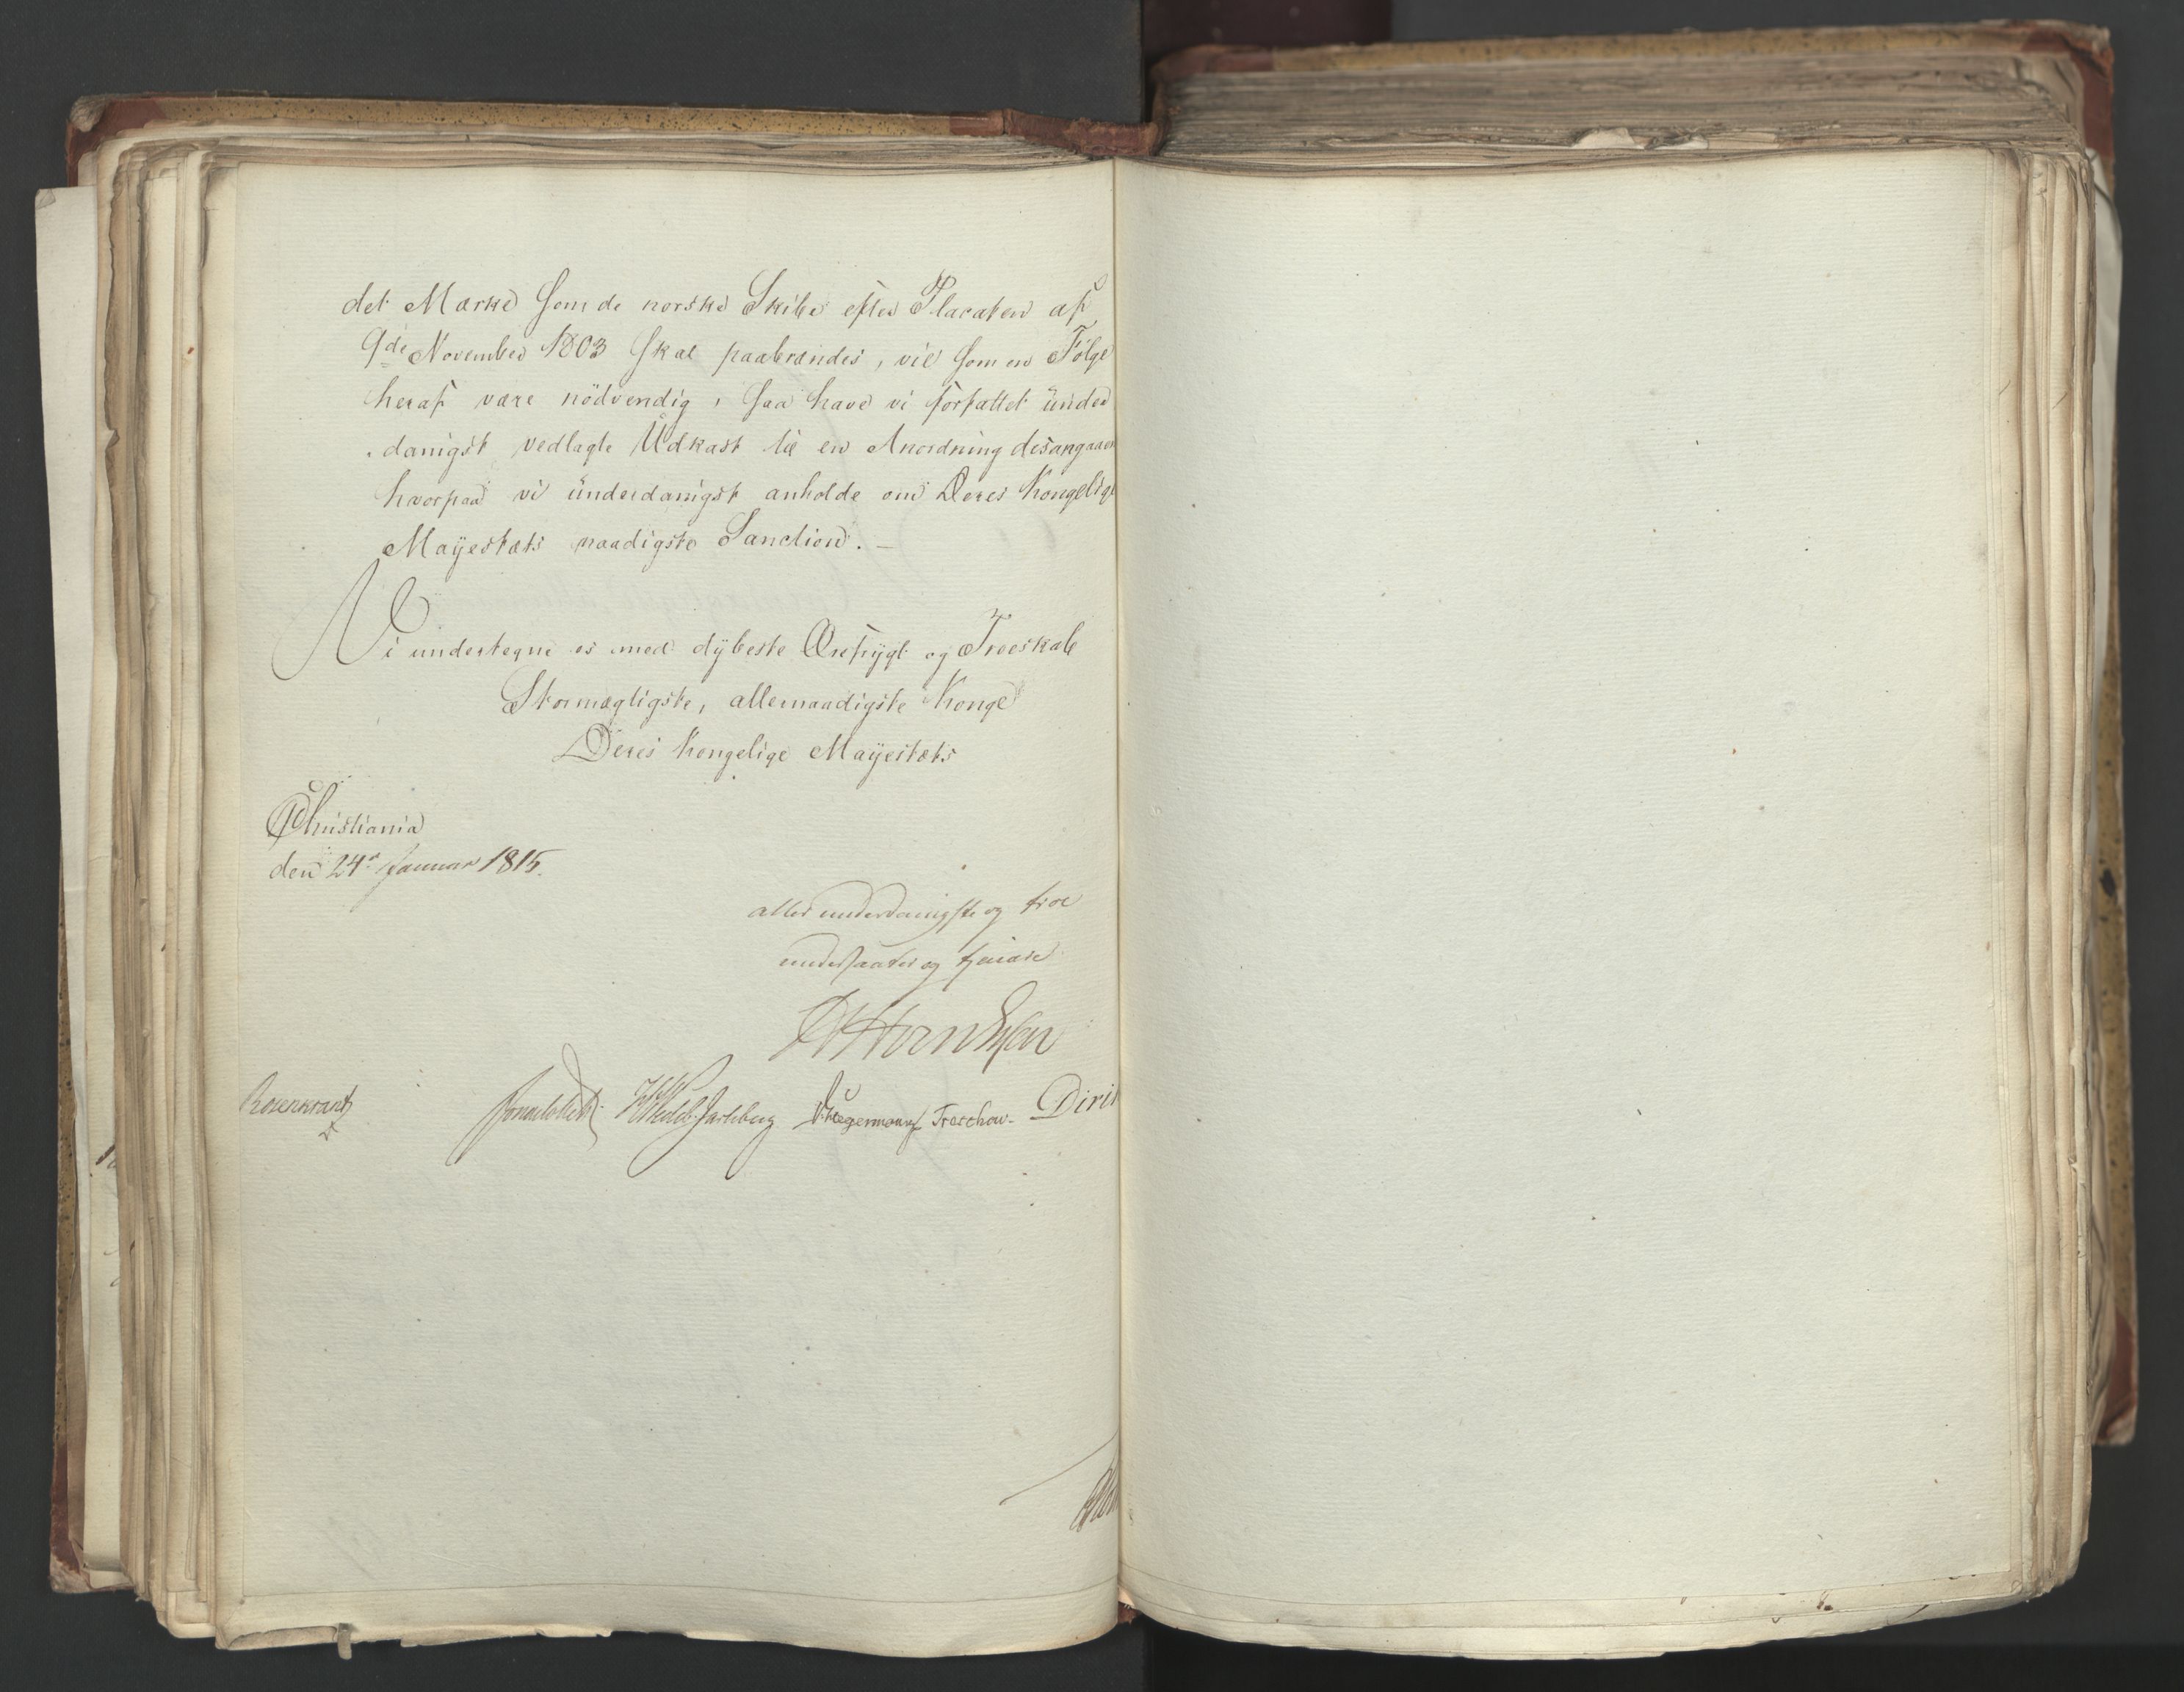 det Mærke som de norske Skibe efter Placaten af
9de November 1803 skal paabrændes, vil som en Følge
heraf være nödvendig, saa have vi forfattet ünder
danigst vedlagte Üdkast til en Anordning desangaaen
hvorpaa vi ünderdanigst anholde om Deres Kongelige
Mayestæts naadigste Sanction. —
Vi undertegne os med dybeste Ærefrygt og Troeskab
Stormægtigste, allernaadigste Konge
Deres Kongelige Mayestæts
Christiania
den 24de Januar 1815.
allerunderdanigste og troe
undersaatter og tjenere
Rosenkrantz
Sommerhielm
HWedel-Jarlsberg
D: Hegermann
Treschow
Diri